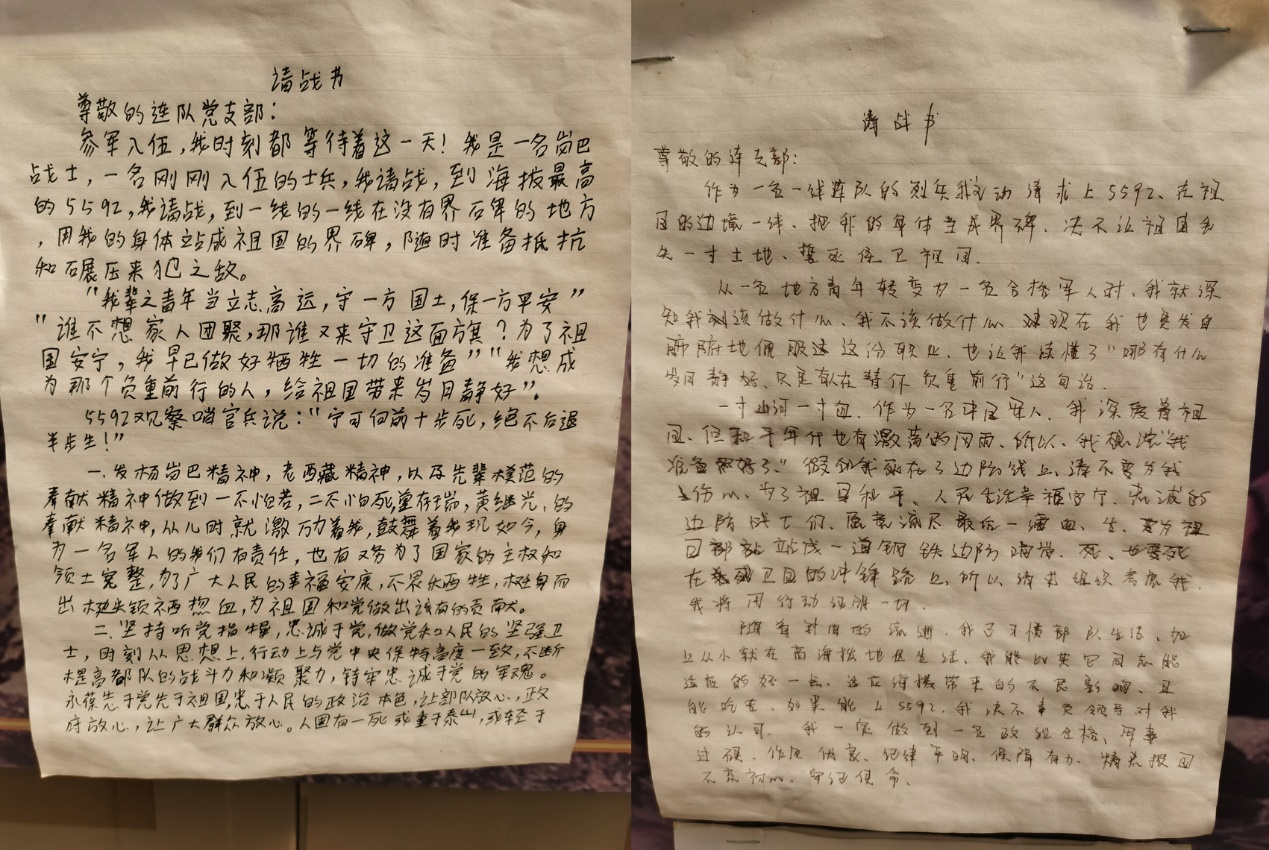 请战书
尊敬的连队党支部：
参军入伍，我时刻都等待着这一天！我是一名岗巴
战士，一名刚刚入伍的士兵，我请战，到海拔最高
的5592，我请战，到一线的一线在没有界石碑的地方
，用我的身体站成祖国的界碑，随时准备抵抗
和碾压来犯之敌。
“我辈之青年当立志高远，守一方国土，保一方平安”
“谁不想家人团聚，那谁又来守卫这面方旗？为了祖
国安宁，我早已做好牺牲一切的准备”“我想成
为那个负重前行的人，给祖国带来岁月静好”。
5592观察哨官兵说：“宁可向前十步死，绝不后退
半步生！”
一、发杨岗巴精神，老西藏精神，以及先辈模范的
奉献精神做到一不怕苦，二不怕死董存瑞，黄继光，的
奉献精神，从儿时就激励着我，鼓舞着我现如今，身
为一名军人的我们有责任，也有义务为了国家的主权和
领土完整，为了广大人民的幸福安康，不畏牺牲，挺身而
出抛头颅洒热血，为祖国和党做出该有的贡献。
二、坚持听党指挥，忠诚于党，做党和人民的坚强卫
士，时刻从思想上，行动上与党中央保持高度一致，不断
提高部队的战斗力和凝聚力，铸牢忠诚于党的军魂。
永葆忠于党忠于祖国忠于人民的政治本色，让部队放心，政
府放心，让广大群众放心。人固有一死或重于泰山，或轻于
请战书
尊敬的连支部：
作为一名一线连队的列兵我主动请求上5592、在祖
国的边境一线、把我的身体当成界碑、决不让祖国丢
失一寸土地、誓死保卫祖国。
从一名地方青年转变为一名合格军人时、我就深
知我该做什么、我不该做什么 现在我也是发自
肺腑地佩服这份职业、也让我读懂了“哪有什么
岁月静好、只是有人在替你负重前行”这句话.
一寸山河一寸血、作为一名中国军人、我深爱着祖
国、但和平年代也有激荡的风雨、所以、我想说“我
准备好了”假如我死在了边防线上、请不要为我
伤心、为了祖国和平、人民生活幸福安宁、忠诚的
边防战士们、愿意流尽最后一滴血、生、要为祖
国站成一道钢铁边防、死、也要死
在卫国的冲锋路上、所以请求组织考虑我.
我将用行动证明一切.
随着时间的流逝、我已习惯部队生活、加
上从小就在高海拔地区生活、我能比其它同志能
适应的好一点、这在缺氧带来的不良影响、且
能吃苦、如果能上5592、我决不辜负领导对我
的认可、我一定做到一名政治合格、军事
过硬、作风优良、纪律严明、保障有力、精忠报国
不忘初心、牢记使命、